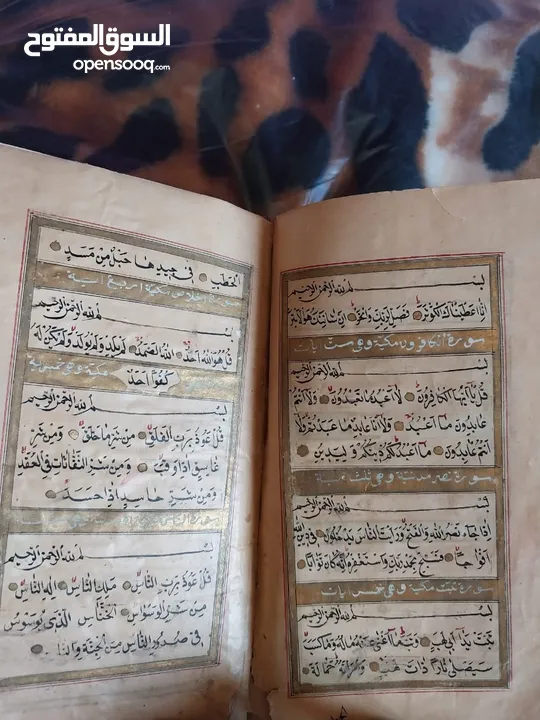 السوق المفتوح
opensooq.com
بسم الله الرحمن الرحيم
انا اعطيناك الكوثر فصل لربك وانحر ان شانئك هو الابتر
سورة الكافرون مكية وهي ست ايات
بسم الله الرحمن الرحيم
قل يا ايها الكافرون لا اعبد ما تعبدون ولا انتم
عابدون ما اعبد ولا انا عابد ما عبدتم ولا
انتم عابدون ما اعبد لكم دينكم ولي دين
سورة نصر مدنية وهي ثلث اية
بسم الله الرحمن الرحيم
اذا جاء نصر الله والفتح ورايت الناس يدخلون في دين الله
افواجا فسبح بحمد ربك واستغفره انه كان توابا
سورة تبت مكية وهي خمس ايات
بسم الله الرحمن الرحيم
تبت يدا ابي لهب وتب ما اغنى عنه ماله وما كسب
سيصلى نارا ذات لهب وامراته حمالة
الحطب في جيدها حبل من مسد
سورة اخلاص مكية اربع اية
بسم الله الرحمن الرحيم
قل هو الله احد الله الصمد لم يلد ولم يولد ولم يكن له
كفوا احد
مكية وهي خمس اية
بسم الله الرحمن الرحيم
قل اعوذ برب الفلق من شر ما خلق ومن شر
غاسق اذا وقب ومن شر النفاثات في العقد
ومن شر حاسد اذا حسد
سورة الناس
بسم الله الرحمن الرحيم
قل اعوذ برب الناس ملك الناس اله الناس
من شر الوسواس الخناس الذي يوسوس
في صدور الناس من الجنة والناس